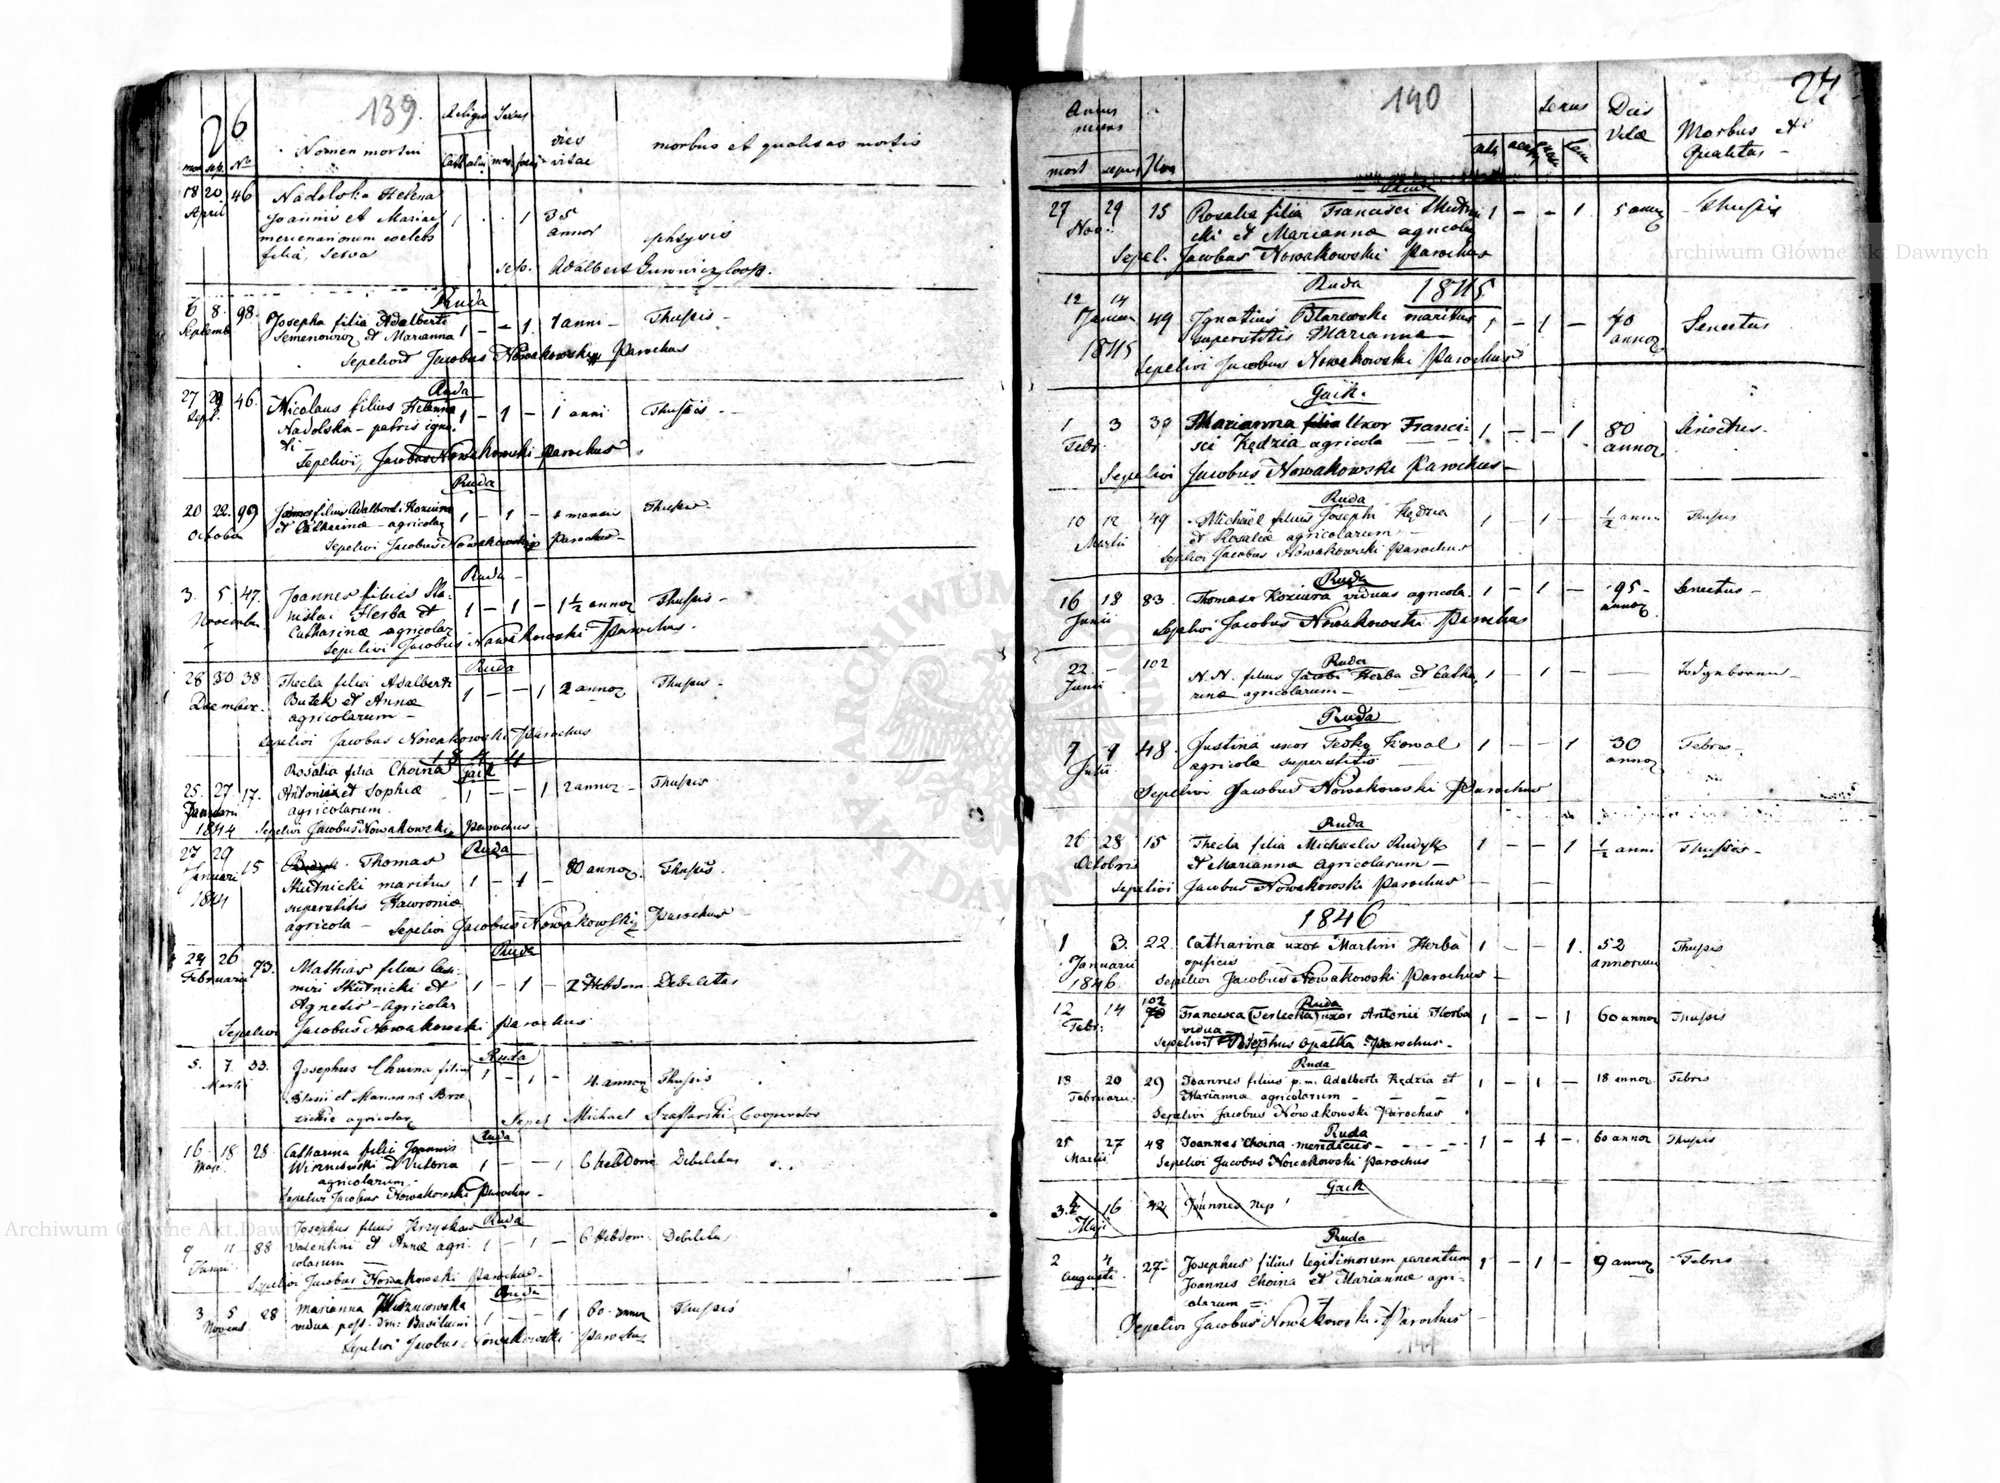 139.
26
Religio Sexus
Nomen mortui
dies vitae
morbus et qualitas mortis
mor sep. No Cathol. mas foem
18 20 46 Nadolska Helena
April Joannis et Mariae 1 . . 1 35 annor
mercenariorum coelebs phtysis
filia, serva
sep. Adalbert Coop.
Ruda
6 8. 98. Josepha filia Adalberti 1 - - 1. 1 anni - Thussis -
Septemb Semenowicz et Marianna
Sepelivit Jacobus Nowakowski Parochus
Ruda
27 29 46. Nicolaus filius Helenna 1 - 1 - 1 anni Thussis - -
Sept. Nadolska - patris igno-
ti -
Sepelivi, Jacobus Nowakowski parochus
Ruda
20 22. 99 filius Adalberti Koziura 1 - 1 - Thussis
October et Catharinae - agricolar
Sepelivi Jacobus Nowakowski parochus -
Ruda -
3. 5. 47. Joannes filius Sta- 1 - 1 - 1 1/2 annor Thussis -
November nislai Herba et
Catharinae agricolar
Sepelivi Jacobus Nowakowski Parochus.
Ruda
28 30 38 Thecla filia Adalberti 1 - - 1 2 annor Thussis -
Decembr. Butek et Annae
agricolarum -
Sepelivi Jacobus Nowakowski Parochus
1844
Rosalia filia Choina Gaik
25. 27 17. Antonii et Sophiae 1 - - 1 2 annor - Thussis
Januarii agricolarum
1844 Sepelivi Jacobus Nowakowski, parochus
Ruda
27 29 15 Thomas
Januari Skutnicki maritus 1 - 1 - 80 annor. Thussis.
1844 superstitis Hawronia
agricola - Sepelivi Jacobus Nowakowski Parochus
Ruda
24 26 73. Mathias filius Casi-
Februarii miri Skutnicki et 1 - 1 - 2 Hebdom Debilitas
Agnetis - agricolar
Sepelivi Jacobus Nowakowski parochus
Ruda
5. 7. 33. Josephus Choina filius 1 - 1 - 4. annor Thussis
Martii Blasii et Marianna Brze-
zickie agricolar
Sepel Michael Szaflarski Cooperator
Ruda
16 18 28 Catharina filia Joannis
Mar. Wiszniewski et Victoria 1 - - 1 6 hebdom Debilitas
agricolarum -
Sepelivi Jacobus Nowakowski Parochus -
Josephus filius Krzyskow Ruda
9 11 88 Valentini et Annae agri- 1 - 1 - 6 Hebdom. Debilitas
Junii colarum -
Sepelivi Jacobus Nowakowski Parochus -
Ruda
3 5 28 Marianna Wiszniowska 1 - - 1 60. annor Thussis
Novemb vidua post. Basilium
Sepelivi Jacobus Nowakowski Parochus
140
24
Annus mensis
sexus
Dies Vitae
Morbus et Qualitas -
mort sepul Nro
Ruda
27 29 15 Rosalia filia Francisci Skutni- 1 - - 1. 5 annor Thussis
Nov. cki et Marianna agricolar
Sepel. Jacobus Nowakowski Parochus
Ruda 1845
12 14 49 Ignatius Blazewski maritus 1 - 1 - 70 annor Senectus
Januar superstitis Marianna -
1845 Sepelivi Jacobus Nowakowski Parochus
Gaik.
1 3 39 Marianna filia Uxor Franci- 1 - - 1 80 annor Senectus.
Febr. sci Kędzia agricola
Sepelivi Jacobus Nowakowski Parochus -
Ruda
10 12 49 Michäel filius Josephi Kędzia 1 - 1 - 1/2 anni Thussis
Martii et Rosalia agricolarum -
Sepelivi Jacobus Nowakowski Parochus
Ruda
16 18 83. Thomas Koziura viduus agricola. 1 - 1 - 95 - annor Senectus -
Junii Sepelivi Jacobus Nowakowski Parochus
Ruda
22. - 102 N. N. filius Jacobi Herba et Catha- 1 - 1 -
Junii rinae agricolarum -
Ruda
7 9 48. Justina uxor Kowal 1 - - 1 30 annor Febris -
Julii agricola superstitis -
Sepelivi Jacobus Nowakowski Parochus
Ruda
26 28 15 Thecla filia Michaelis Rudyk 1 - - 1 1/2 anni Thussis -
Octobris et Marianna agricolarum -
Sepelivi Jacobus Nowakowski Parochus -
1846
1 3. 22. Catharina uxor Martini Herba 1 - - 1. 52 annorum Thussis
Januarii opificis
1846. Sepelivi Jacobus Nowakowski Parochus -
Ruda
12 14 102 Francisca (Terlecka) uxor Antonii Herba 1 - - 1 60 annor Thussis
Febr. vidua
Sepelivit Josephus Opatka Parochus -
Ruda
18 20 29 Joannes filius p. m. Adalberti Kędzia et 1 - 1 - 18 annor Febris
Februarii. Marianna agricolarum -
Sepelivi Jacobus Nowakowski Parochus
Ruda
25 27 48 Joannes Choina mendicus - 1 - 1 - 60 annor Thussis
Martii Sepelivi Jacobus Nowakowski Parochus
Gaik
16 42 Joannes Nep
Maji
Ruda
2 4 27- Josephus filius legitimorum parentum 1 - 1 - 9 annor Febris
Augusti Joannis Choina et Mariannae agri-
colarum =
Sepelivi Jacobus Nowakowski Parochus
141
Archiwum Główne Akt Dawnych
Archiwum Główne Akt Dawnych
ARCHIWUM GŁÓWNE AKT DAWNYCH